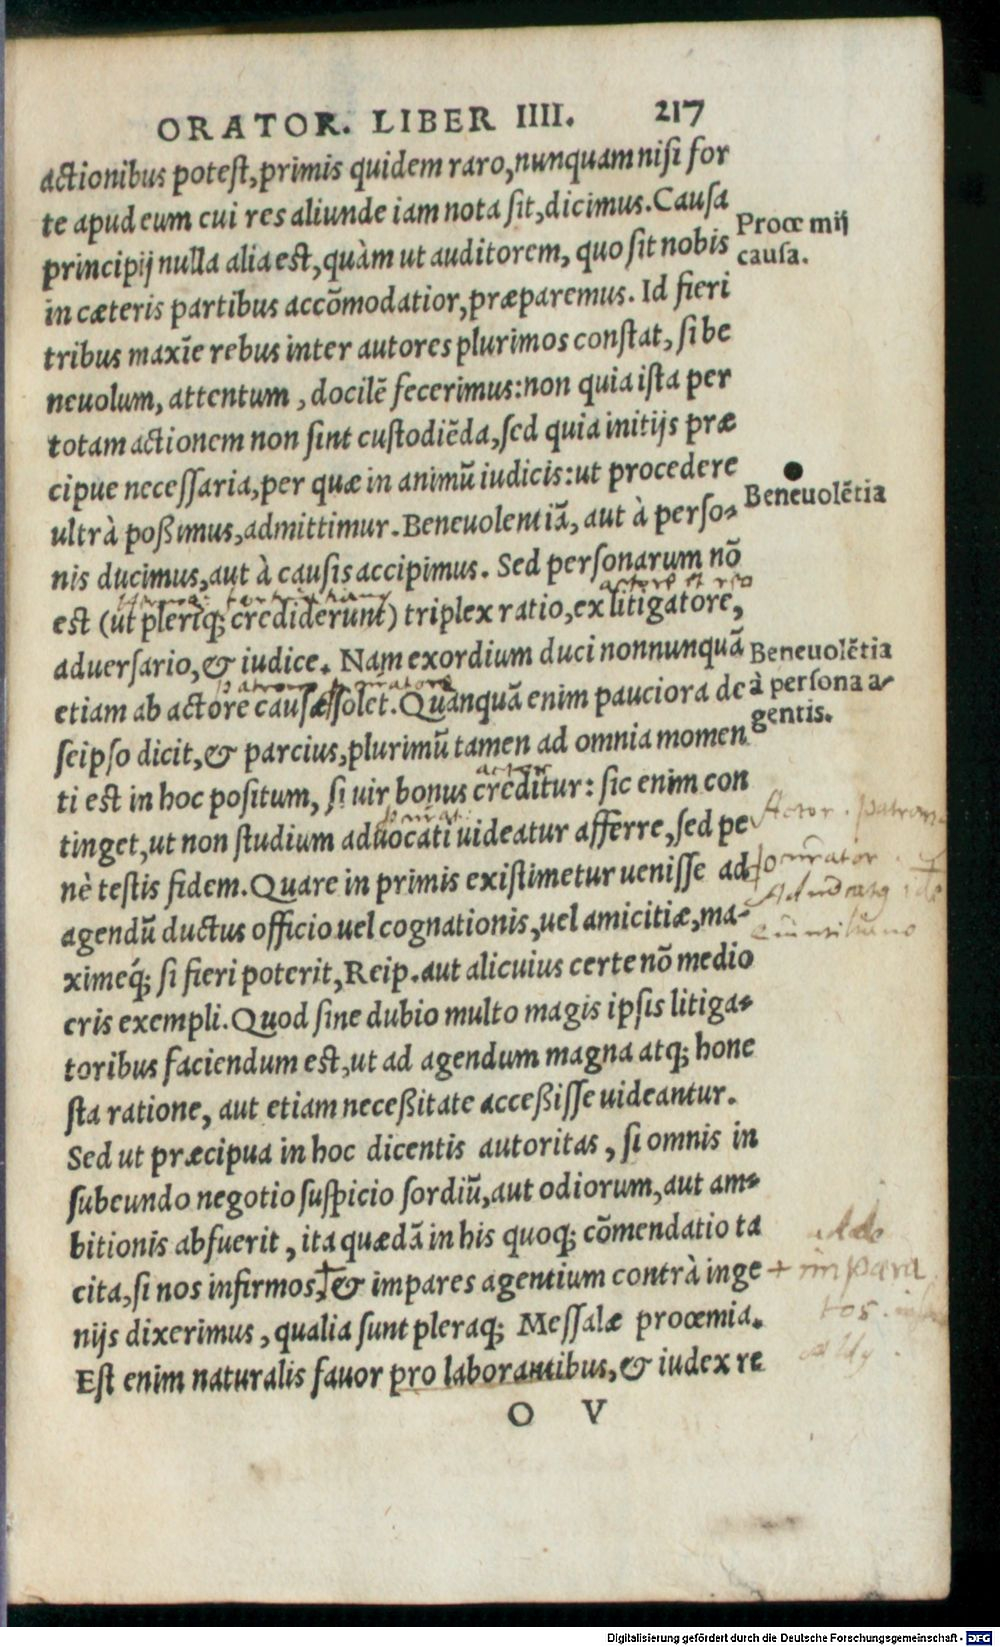 ORATOR. LIBER IIII. 217
actionibus potest, primis quidem raro, nunquam nisi for
te apud eum cui res aliunde iam nota sit, dicimus. Causa
Procemij
principij nulla alia est, quàm ut auditorem, quo sit nobis
causa.
in cæteris partibus accōmodatior, præparemus. Id fieri
tribus maxīe rebus inter autores plurimos constat, si be
neuolum, attentum, docilē fecerimus: non quia ista per
totam actionem non sint custodiēda, sed quia initijs præ
cipue necessaria, per quæ in animū iudicis: ut procedere
Beneuolētia
ultrà poßimus, admittimur. Beneuolentiā, aut à perso-
nis ducimus, aut à causis accipimus. Sed personarum nō
actore et reo
est (ut pleriq; crediderunt) triplex ratio, ex litigatore,
aduersario, & iudice. Nam exordium duci nonnunquā
Beneuolētia
etiam ab actore causæ solet. Quanquā enim pauciora de
à persona a-
gentis.
seipso dicit, & parcius, plurimū tamen ad omnia momen
actor
ti est in hoc positum, si uir bonus creditur: sic enim con
tinget, ut non studium aduocati uideatur afferre, sed pe
Actor. patron
nè testis fidem. Quare in primis existimetur uenisse ad
agendū ductus officio uel cognationis, uel amicitiæ, ma-
ximeq́; si fieri poterit, Reip. aut alicuius certe nō medio
cris exempli. Quod sine dubio multo magis ipsis litiga-
toribus faciendum est, ut ad agendum magna atq; hone
sta ratione, aut etiam neceßitate acceßisse uideantur.
Sed ut præcipua in hoc dicentis autoritas, si omnis in
subeundo negotio suspicio sordiū, aut odiorum, aut am-
bitionis abfuerit, ita quædā in his quoq; cōmendatio ta
cita, si nos infirmos, & impares agentium contrà inge
+ impara
tos.
nijs dixerimus, qualia sunt pleraq; Messalæ procemia.
Est enim naturalis fauor pro laborantibus, & iudex re
O V
Digitalisierung gefördert durch die Deutsche Forschungsgemeinschaft - DFG